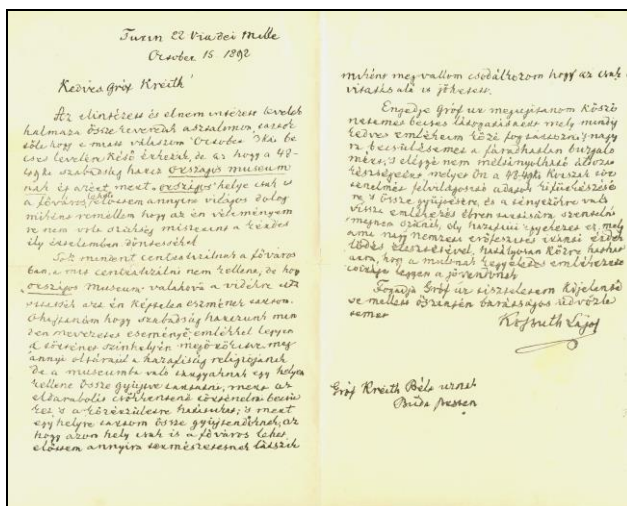 Turin 22 Via dei Mille
October 15 1892
Kedves Gróf Kreith!
Az elintézett és el nem intézett levelek
halmaza össze keveredek asztalomon,
e miatt válaszom October
levelére késő érkezik, de az hogy a 48-
49ki szabadság harcz országos museum-
nak és azért, mert "országos" helye csak is
a főváros lehet, előttem annyira világos dolog
miként remélem hogy az én véleményem
re nem volt szükség miszerint a kérdés
ily értelemben döntessék el.
Sok mindent centralizálnak a főváros
ban, a mit centralizálni nem kellene, de hogy
országos Museum valahová a vidékre
azt én képtelen eszmének tartom.
Óhajtanám hogy szabadság harczunk min
den nevezetes eseménye, emlékkel legyen
a történet színhelyén megörökítve meg
annyi oltáraul a hazafiság religiójának
De a museumba való tárgyaknak egy helyen
kellene össze gyűjtve tartatni, mert az
eldarabolás csökkentené történelmi becsü
ket, s a közérzületre hatásukat; s mert
egy helyre tartom össze gyűjtendőknek, az
hogy azon hely csak is a főváros lehet,
előttem annyira természetesnek látszik
miként megvallom csodálkozom hogy az csak
vitatás alá is jöhetett.
Engedje Gróf úr megujítanom köszö
netemet becses látogatásáért mely mindig
kedves emlékeim közé fog tartozni, s nagy
ra becsülésemet a fáradhatlan buzgalo
mért, s eléggé nem méltányolható áldozat
készségért melyet Ön a 48-49ki korszak tör
ténelmét felvilágosító adatok kifürkészésé
re, s össze gyűjtésére, és a tényezőkre való
vissza emlékezés ébren tartására szentelni
meg nem szűnik, oly hazafiui igyekezet ez, mely
ami nagy nemzeti erőfeszítés iránti érdek
lődés élesztésével, hatályosan közre hathat
arra, hogy a multnak kegyeletes emlékezete
legyen a jövendőnek
Fogadja Gróf úr tiszteletem kijelenté
se mellett őszintén barátságos üdvözle
temet
Kossuth Lajos
Gróf Kreith Béla urnak
Buda Pesten